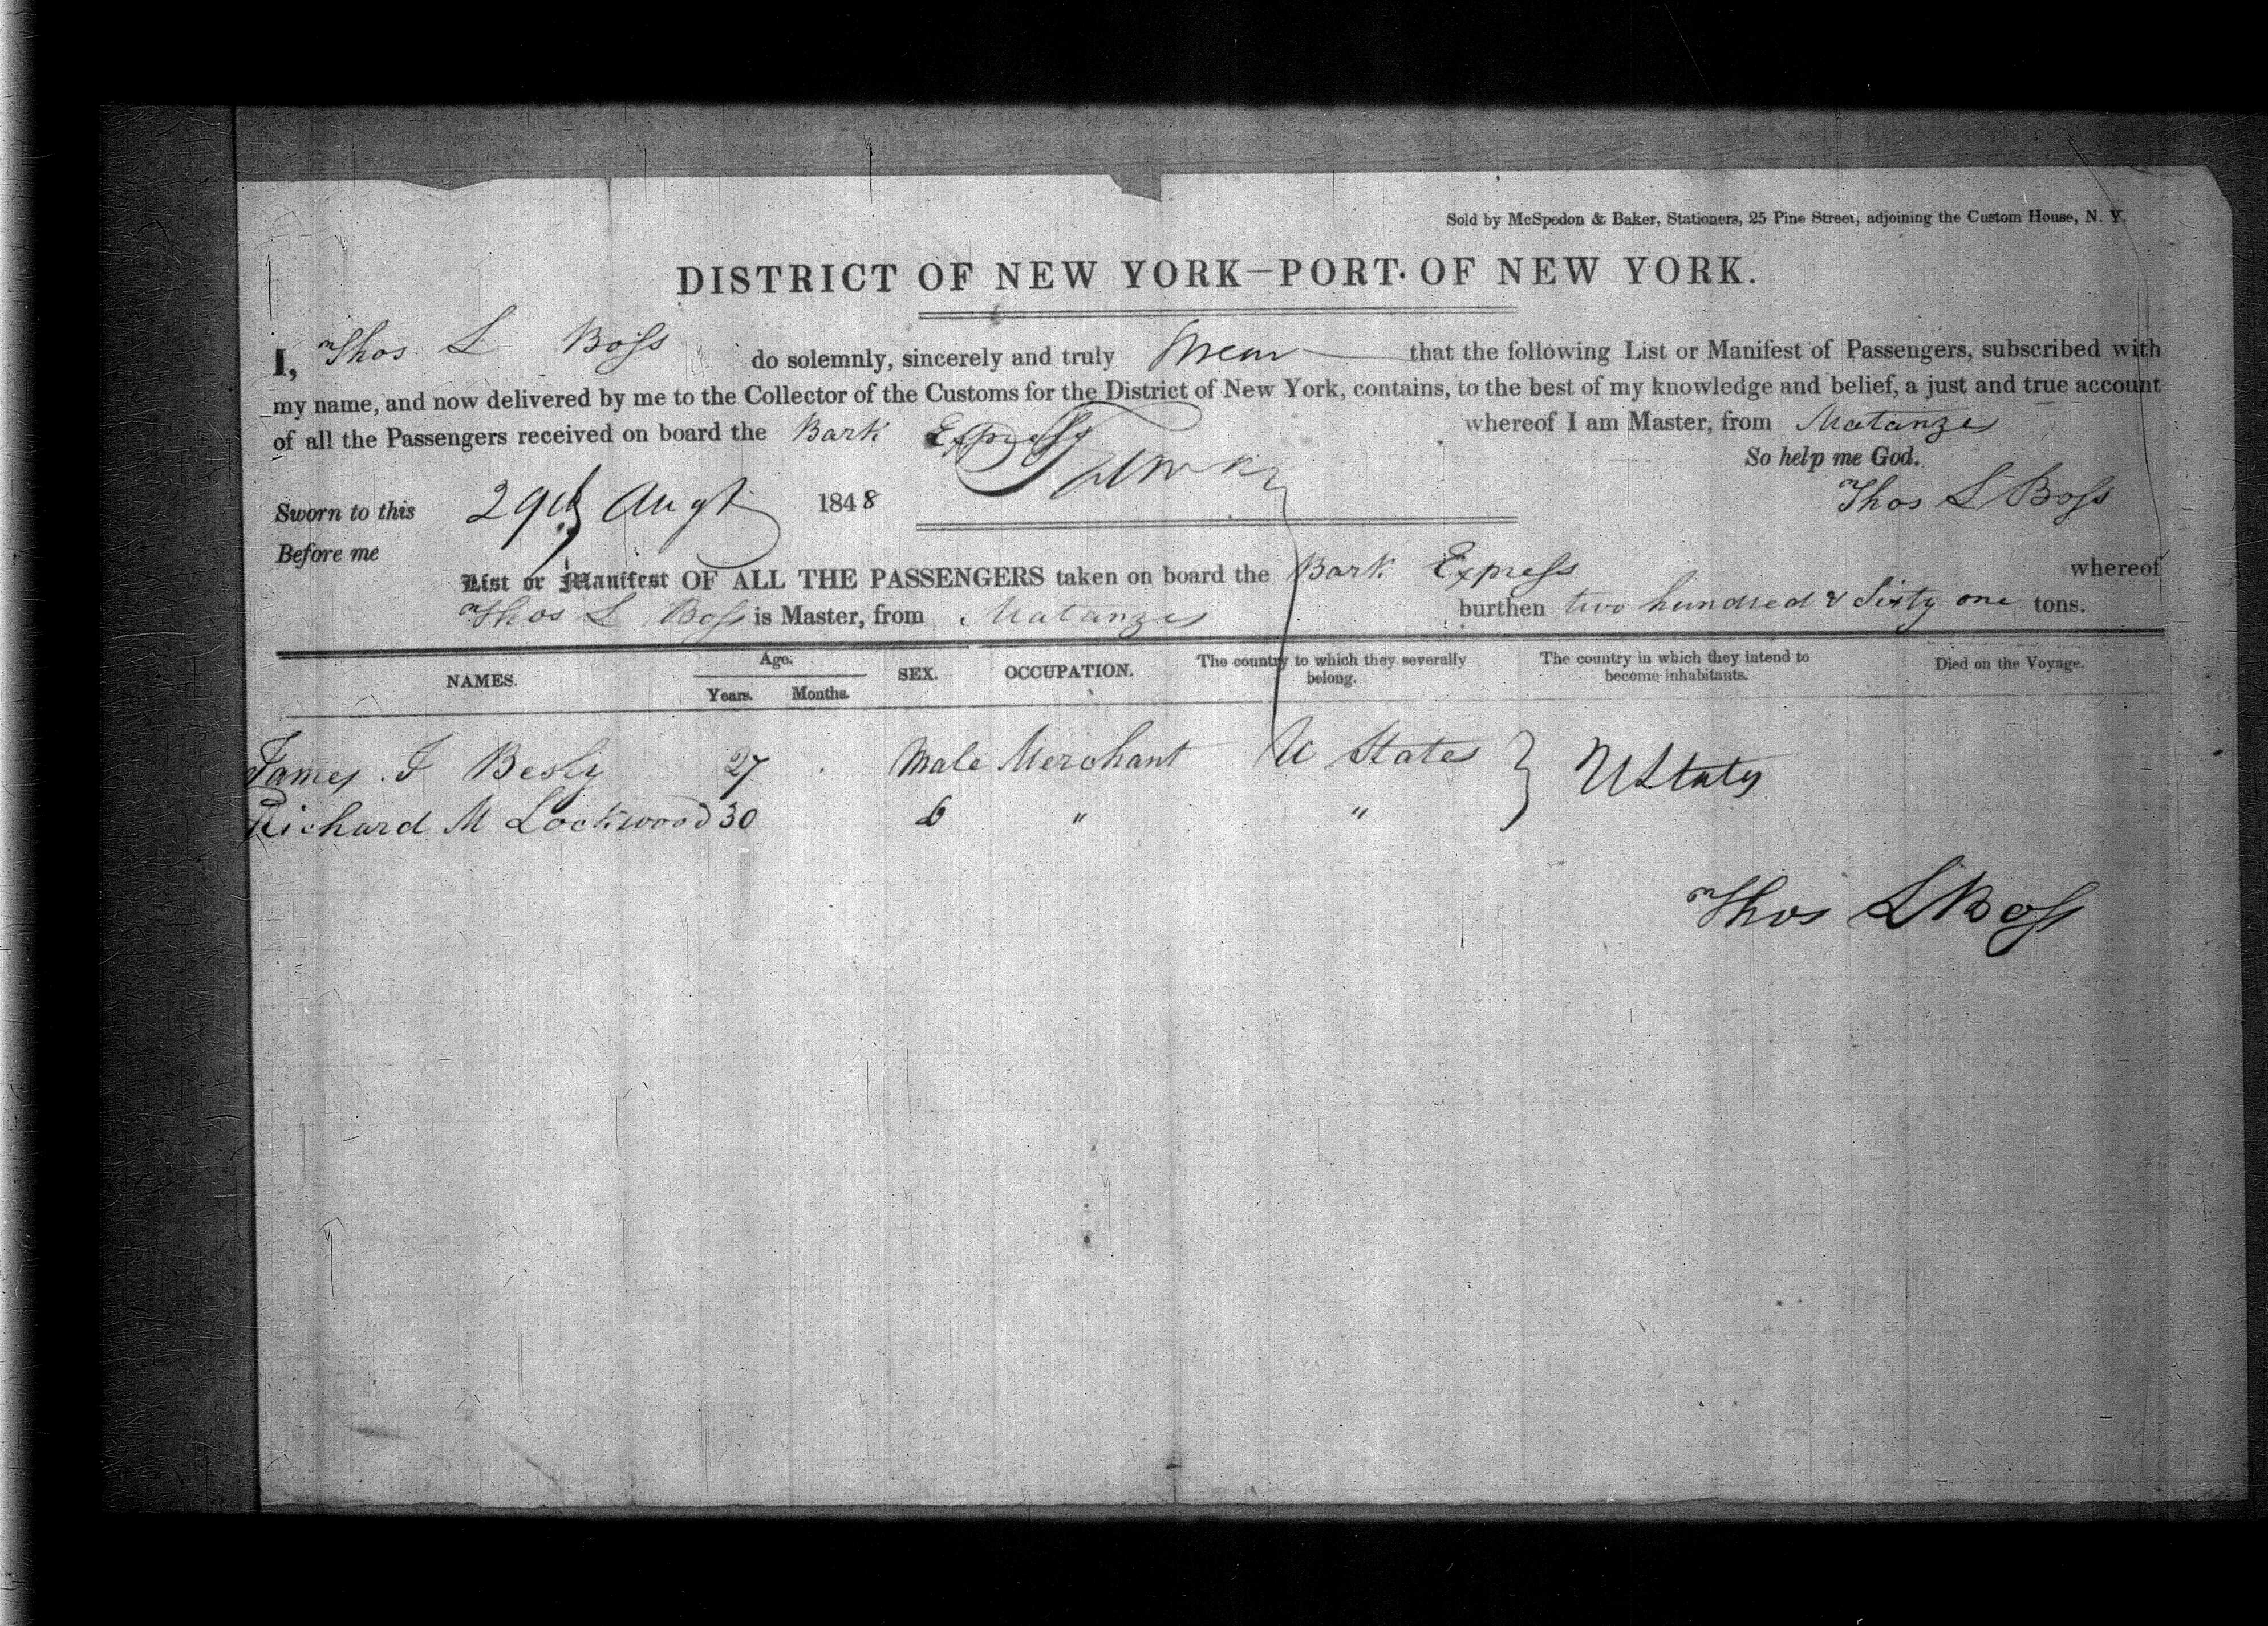 Sold by McSpedon & Baker, Stationers, 25 Pine Street, adjoining the Custom House, N. Y.
DISTRICT OF NEW YORK—PORT OF NEW YORK.
I, Thos L Boss do solemnly, sincerely and truly Swear that the following List or Manifest of Passengers, subscribed with
my name, and now delivered by me to the Collector of the Customs for the District of New York, contains, to the best of my knowledge and belief, a just and true account
of all the Passengers received on board the Bark Express whereof I am Master, from Matanzes
So help me God.
Sworn to this 29th Augt 1848 Thos L Boss
Before me
List or Manifest OF ALL THE PASSENGERS taken on board the Bark Express whereof
Thos L Boss is Master, from Matanzes burthen two hundred & Sixty one tons.
NAMES. Age. Years. Months. SEX. OCCUPATION. The country to which they severally belong. The country in which they intend to become inhabitants. Died on the Voyage.
James J Besly 27 Male Merchant U States } U States
Richard M Lockwood 30 do " "
Thos L Boss